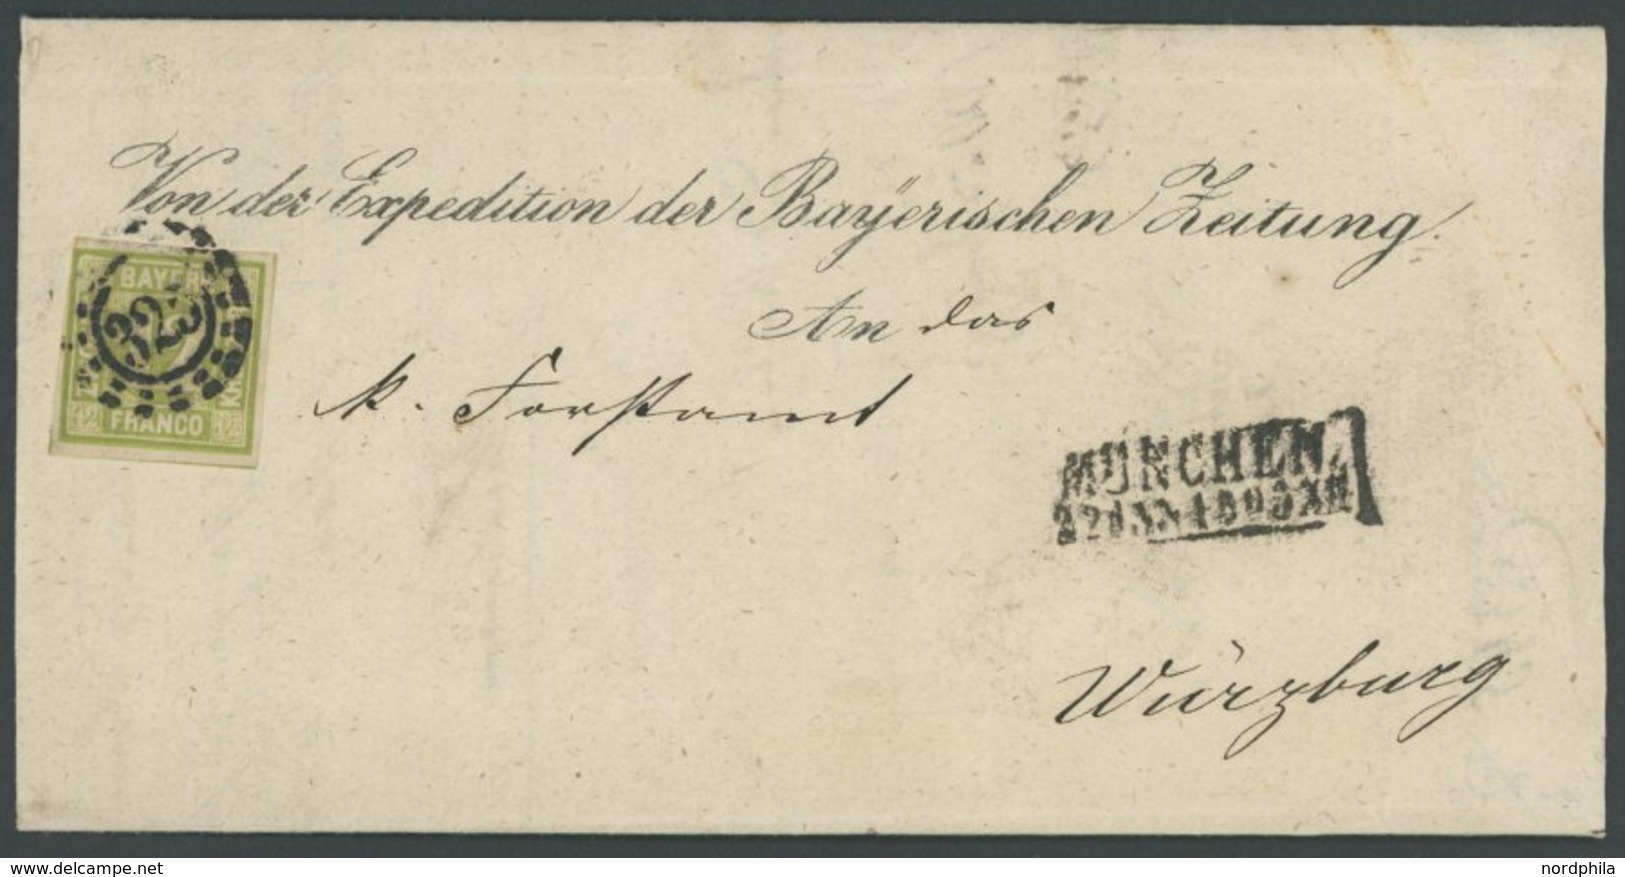 Von der Expedition der Bayerischen Zeitung.
An das
k. Forstamt
Würzburg
BAYERN
FRANCO
12
12
325
MÜNCHEN
22 JAN 186 XII
1
www.delcampe.net
nordphila